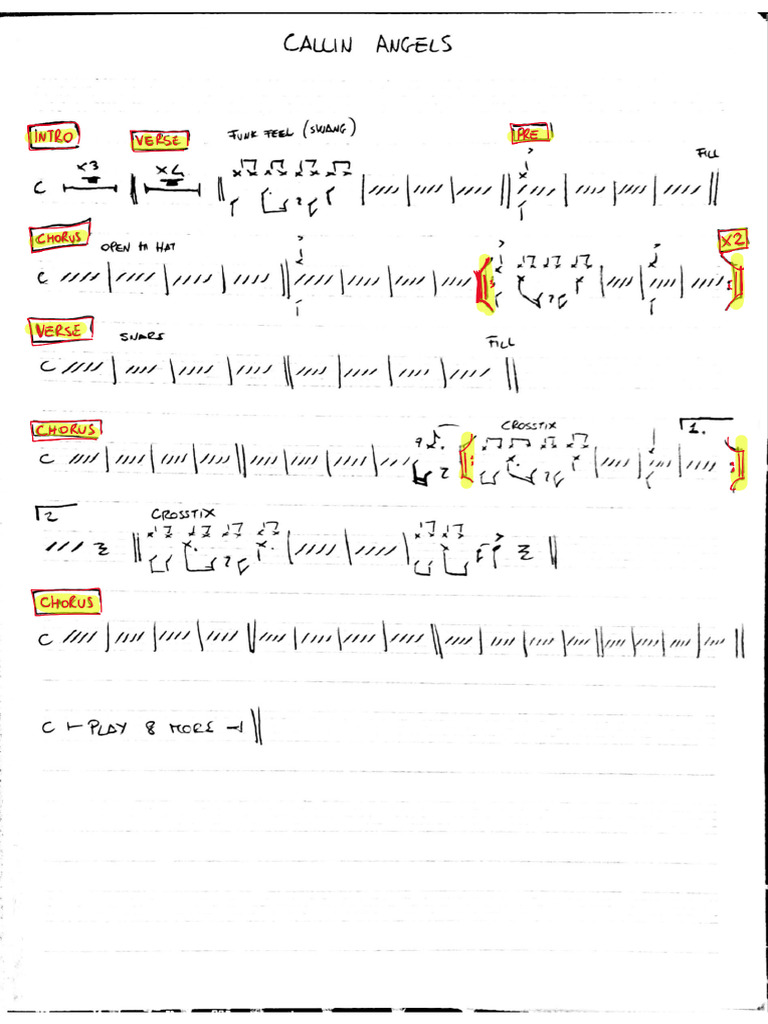 CALLIN ANGELS
INTRO VERSE FUNK FEEL (SWANG) PRE
X3 X4 FILL
C
CHORUS OPEN HI HAT X2
C
VERSE SNARE FILL
C
CHORUS CROSSTIX 1.
C
2 CROSSTIX
CHORUS
C
C PLAY 8 MORE